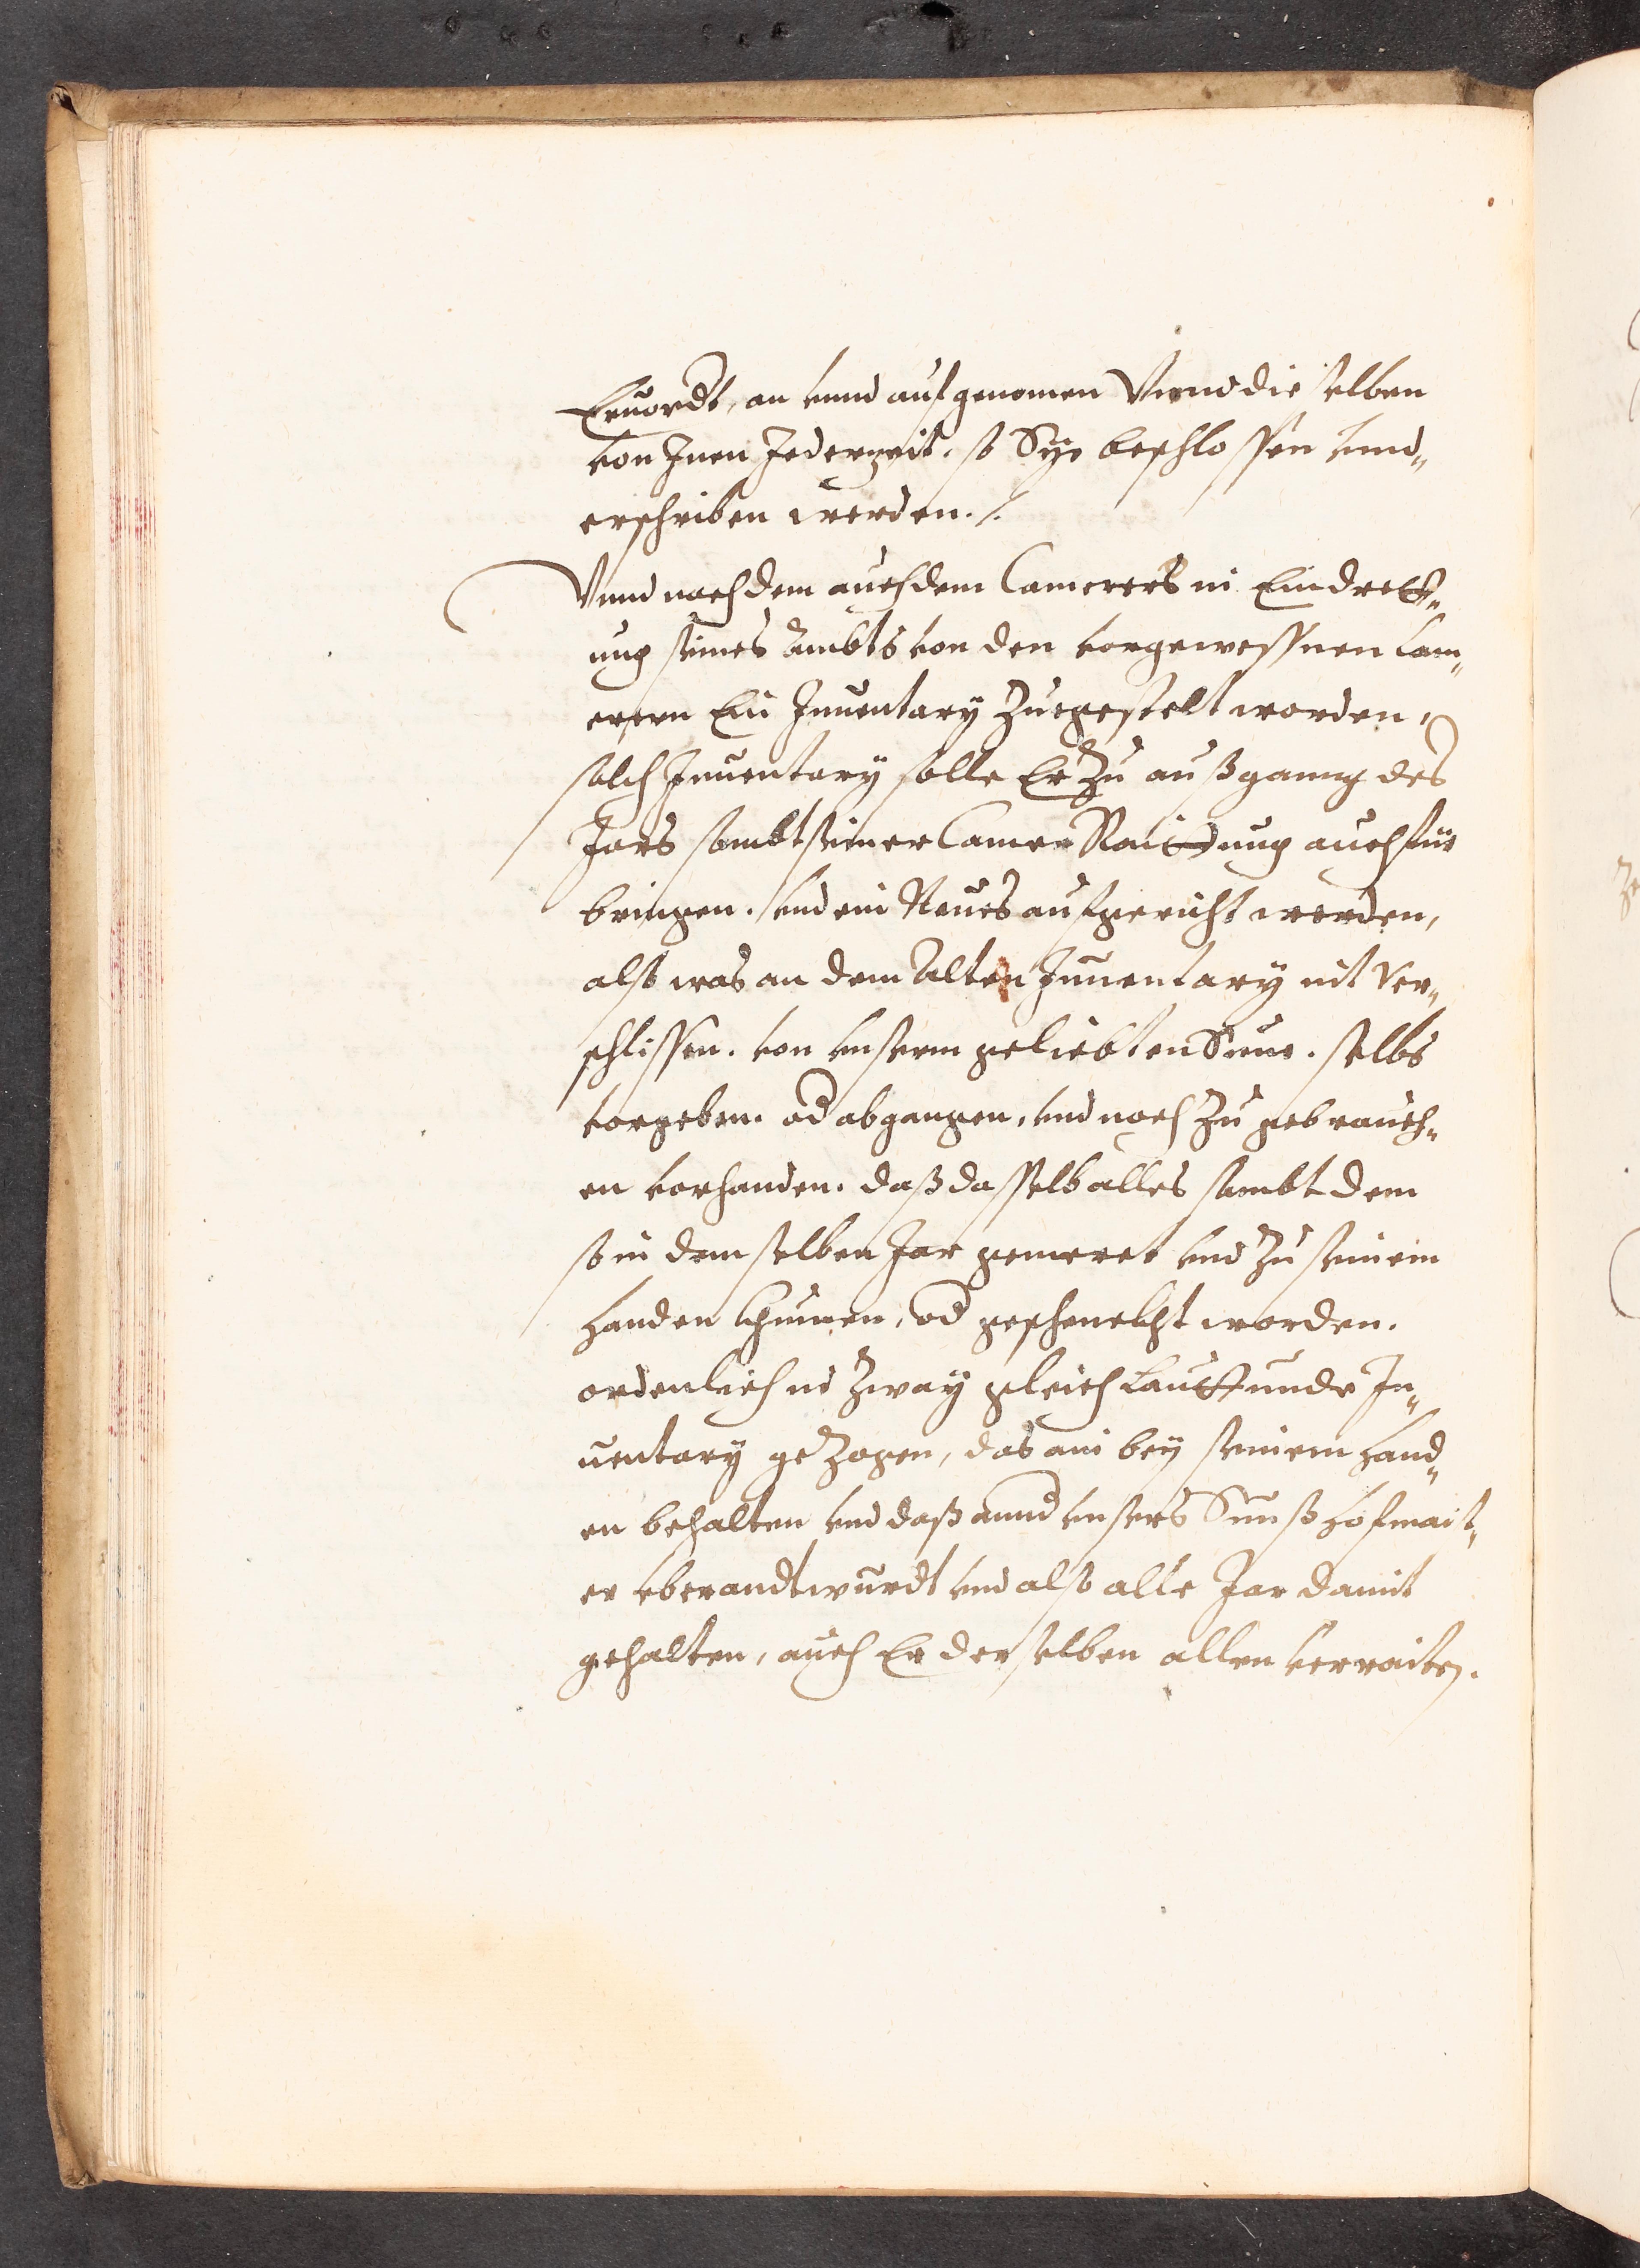 an vnnd aufgenomen Vnnd dieselben
von Inen Jederzeit. so Sye beschlossen vnnd„
erschriben werden ./.
Vnnd nachdem auch dem Camerers in Eindrett„
ung seines Ambts von den vorgewessnen Cam„
erern Ein Inuentary Zuegestelt worden,
solch Inuentary solle Er Zu außganng des
Jars sambt seiner Camer Raittung auch für
bringen. vnd ein Neues aufgericht werden,
also was an dem Alten Inuentary nit Ver„
schlissen. von vnserm geliebten Sune. selbs
vergeben. od abgangen. vnd noch Zu gebrauch„
en vorhanden. daß dasselb alles sambt dem
so in demselben Jar gemeret vnd Zu seinem
Handen khumen, od geschenckht worden.
ordenlich in Zway gleich Lauttunde In„
uentary geZogen, das ain bey seinem Hand„
en behalten vnd daß annd vnsers Sunß Hofmaist„
er vberandtwurdt vnd also alle Jar damit
gehalten, auch Er derselben allen verraiten.